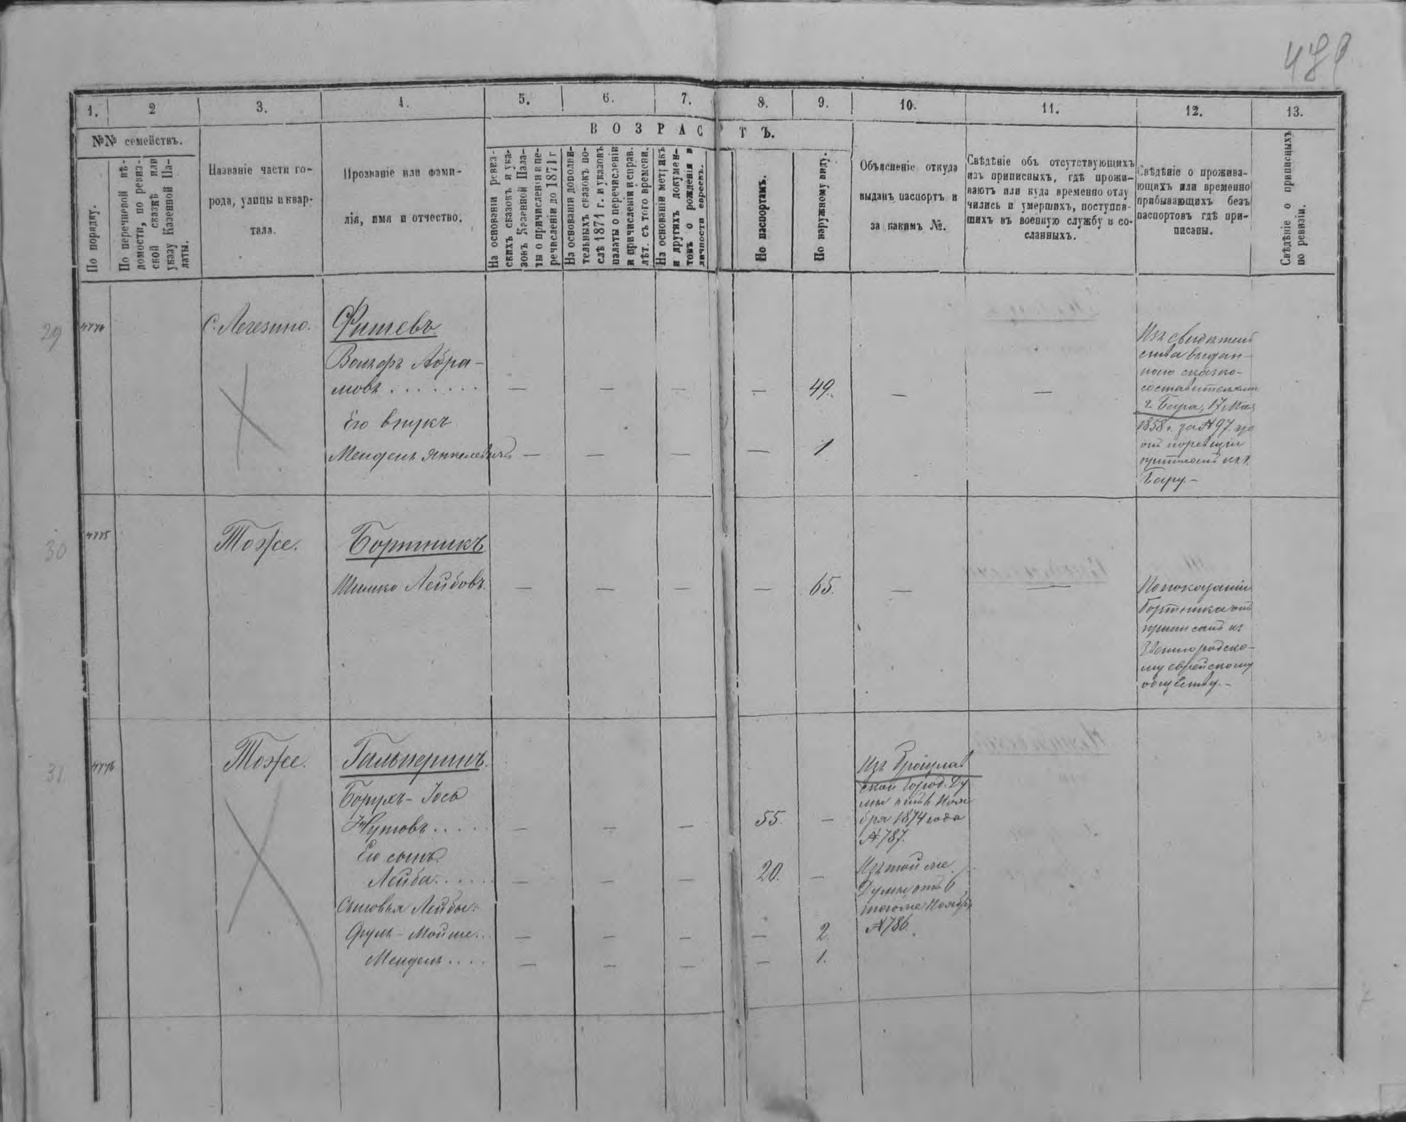 489
1.
2
3.
4.
5.
6.
7.
8.
9.
10.
11.
12.
13.
№№ семействъ.
По порядку.
По перечневой вѣ-
домости, по ревиз-
ской сказкѣ или
указу Казенной Па-
латы.
Названіе части го-
рода, улицы и квар-
тала.
Прозваніе или фами-
лія, имя и отчество.
ВОЗРАСТЪ.
На основаніи ревиз-
скихъ сказокъ и ука-
зовъ Казенной Пала-
ты о причисленіи и пе-
речисленіи до 1871 г
На основаніи дополни-
тельныхъ сказокъ по-
слѣ 1871 г. и указовъ
палаты о перечисленіи
и причисленіи и справ.
лѣт. съ того времени.
На основаніи метрикъ
и другихъ докумен-
товъ о рожденіи и
личности евреевъ.
По паспортамъ.
По наружному виду.
Объясненіе откуда
выданъ паспортъ и
за какимъ №.
Свѣдѣніе объ отсутствующихъ
изъ приписныхъ, гдѣ прожи-
ваютъ или куда временно отлу
чились и умершихъ, поступив-
шихъ въ военную службу и со-
сланныхъ.
Свѣдѣніе о прожива-
ющихъ или временно
прибывающихъ безъ
паспортовъ гдѣ при-
писаны.
Свѣдѣніе о приписныхъ
по ревизіи.
29
4774
С. Легезино.
Фишевъ
Волько Абра-
мовъ . . . . . . . — — — — 49. — —
Его внукъ
Мендель Янкелевичъ — — — — 1
Изъ свидѣтель
ства выдан-
наго сказко-
составителемъ
г. Бара, 17 Мая
1858 г. за № 97
Бару —
30
4775
Тоже.
Бортникъ
Шимко Лейбовъ — — — — 65. — —
По показанію
Бортника онъ
приписанъ къ
Звенигородско-
му еврейскому
обществу. —
31
4776
Тоже.
Гальперинъ.
Борухъ-Іось
Нутовъ . . . . — — — 55. —
Его сынъ
Лейба . . . . — — — 20. —
Сыновья Лейбы:
Срулъ-Мойше . . — — — — 2.
Мендель . . . . — — — — 1.
Изъ Брацлав
ской Город. Ду
мы отъ 6 Нояб
бря 1874 года
№ 787.
Изъ той же
Думы отъ 6
тогоже Ноября
№ 786.